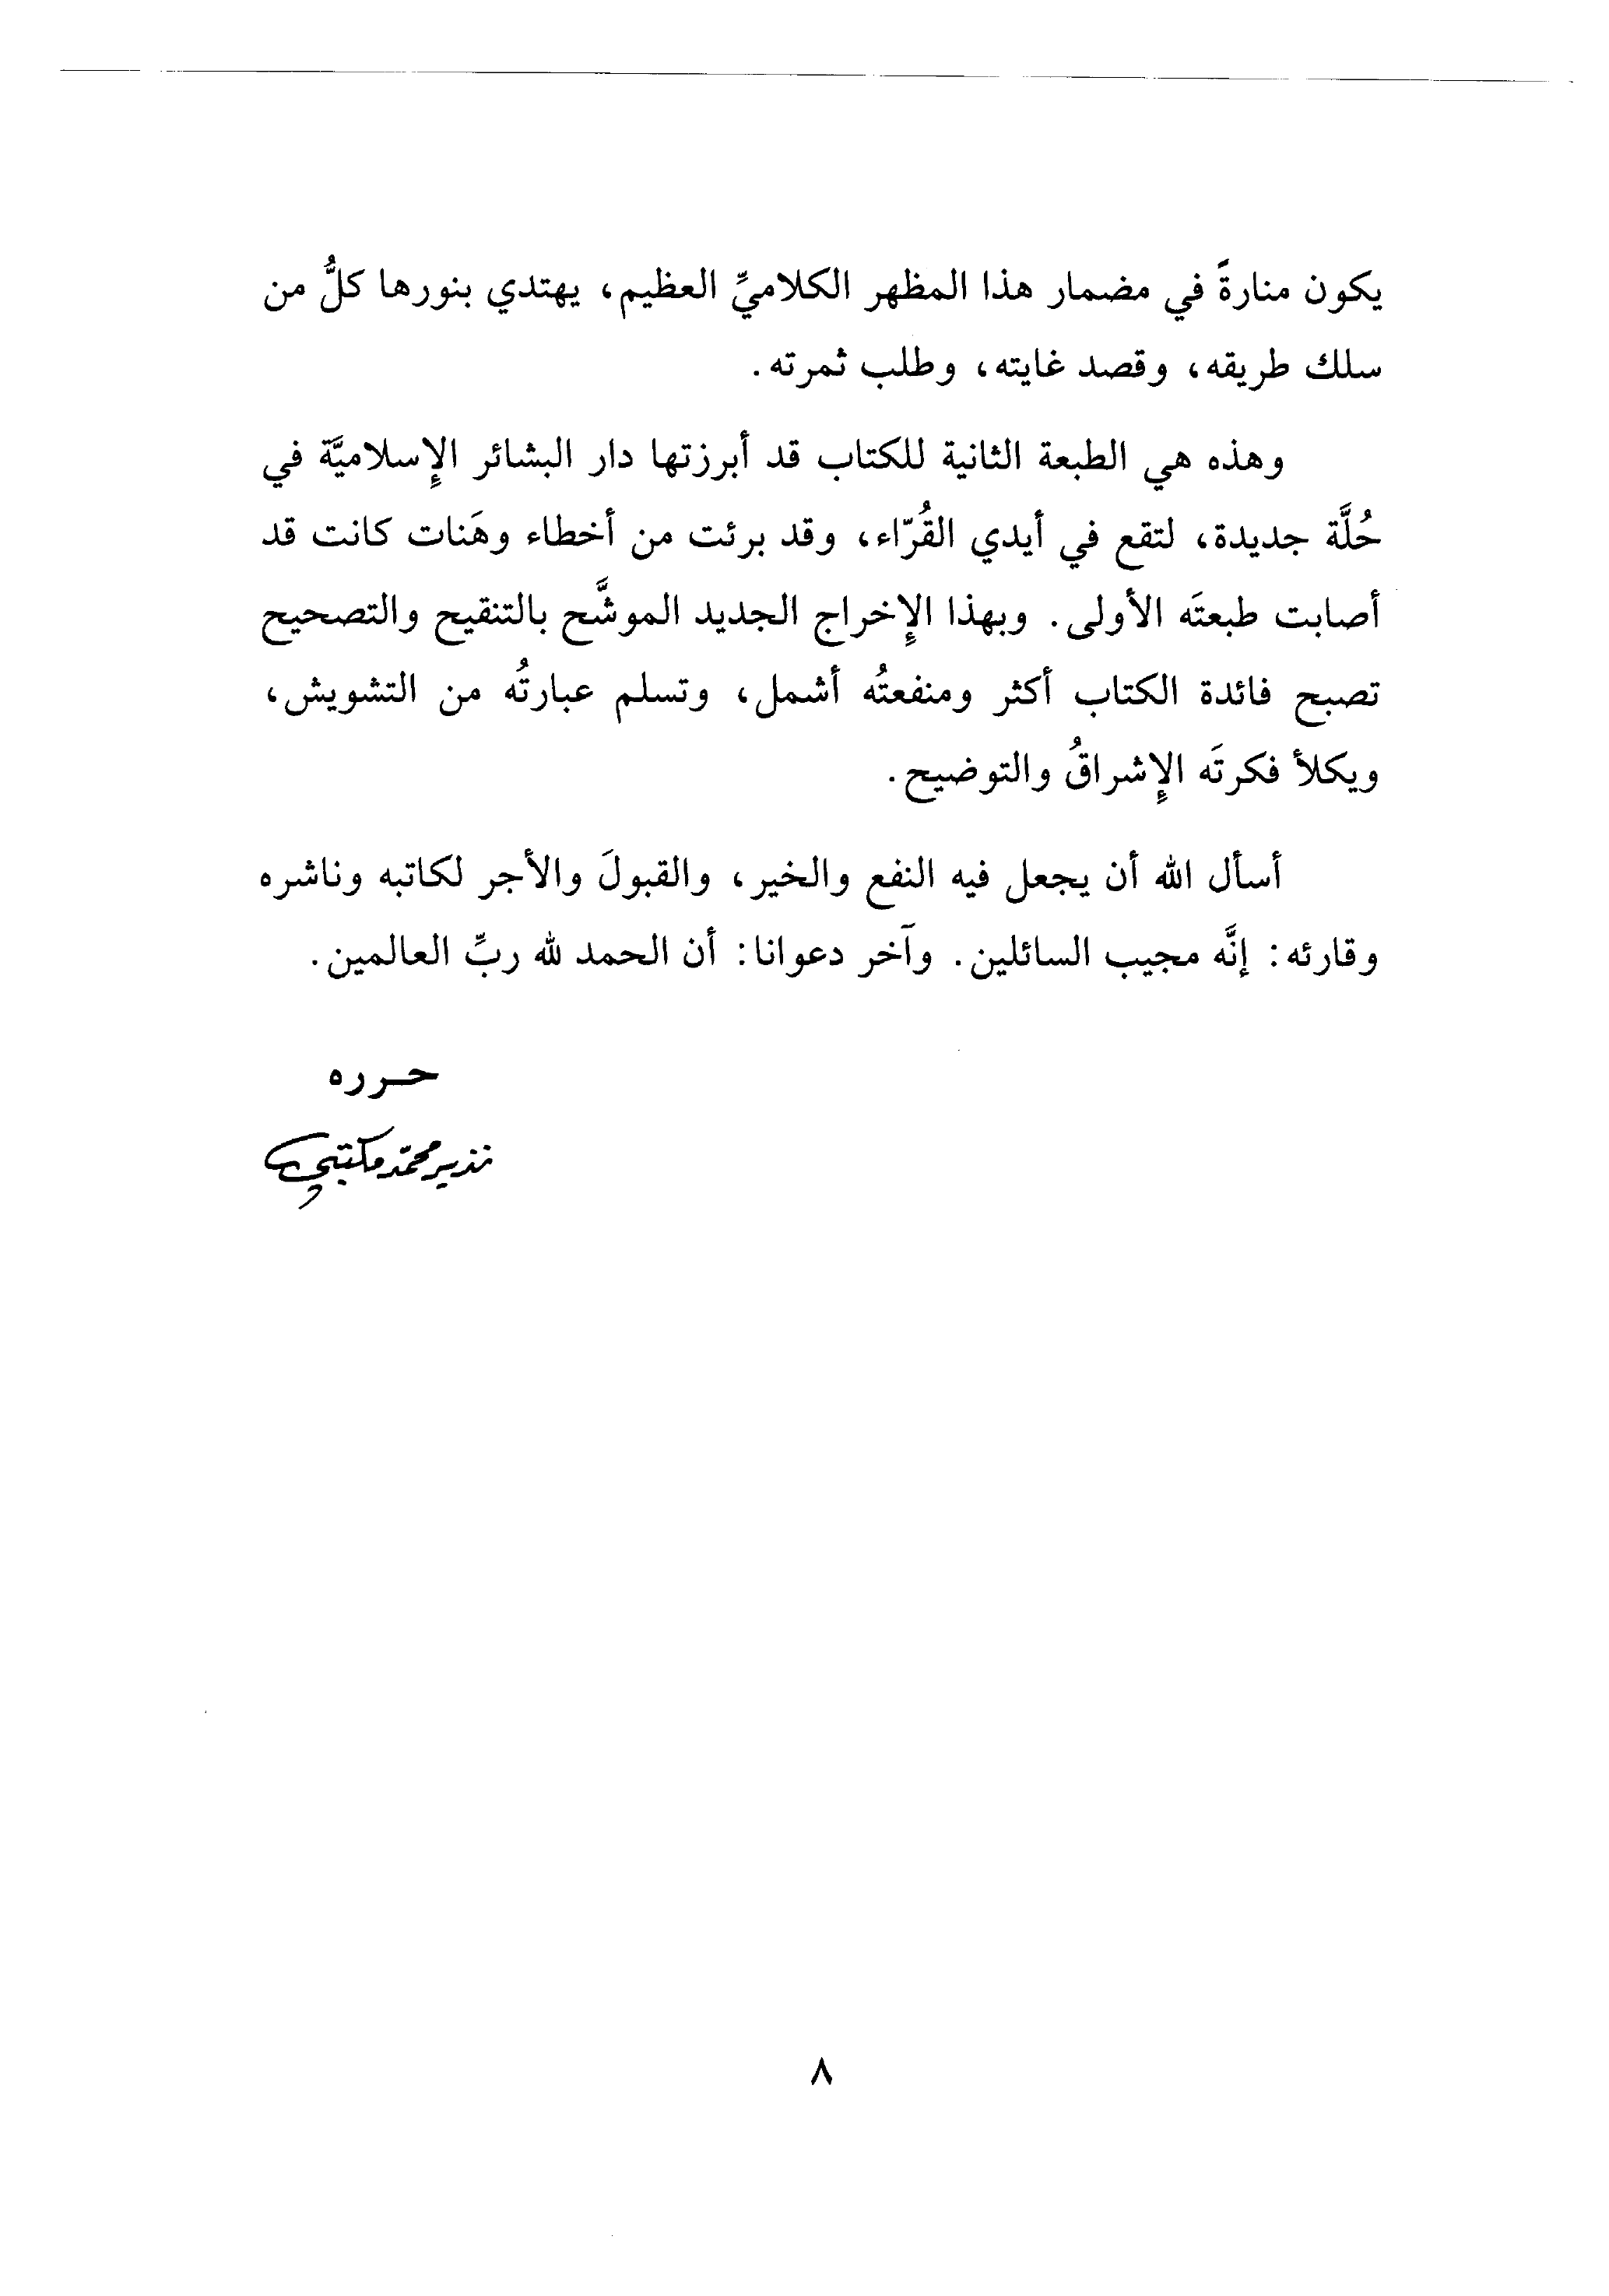 يكون منارةً في مضمار هذا المظهر الكلاميِّ العظيم، يهتدي بنورها كلُّ من
سلك طريقه، وقصد غايته، وطلب ثمرته.
وهذه هي الطبعة الثانية للكتاب قد أبرزتها دار البشائر الإِسلاميَّة في
حُلَّة جديدة، لتقع في أيدي القُرّاء، وقد برئت من أخطاء وهَنات كانت قد
أصابت طبعتَه الأولى. وبهذا الإِخراج الجديد الموشَّح بالتنقيح والتصحيح
تصبح فائدة الكتاب أكثر ومنفعتُه أشمل، وتسلم عبارتُه من التشويش،
ويكلأ فكرتَه الإِشراقُ والتوضيح.
أسأل الله أن يجعل فيه النفع والخير، والقبولَ والأجر لكاتبه وناشره
وقارئه: إنَّه مجيب السائلين. وآخر دعوانا: أن الحمد لله ربِّ العالمين.
حـرره
نذير محمّد مكتبي
٨